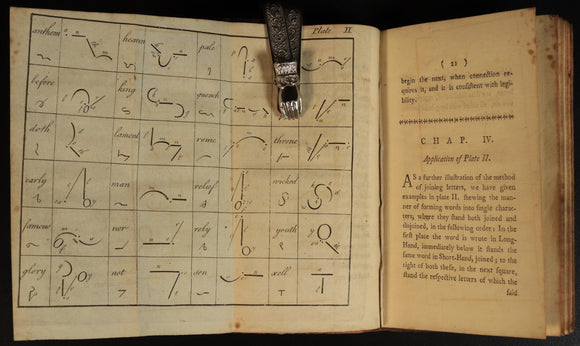 Plate II
anthem heaven pale
before king quench
doth lament rome throne
early man relief wicked
famous nor rely youth
glory not sen xoll
( 21 )
begin the next, when connection re-
quires it, and it is consistent with legi-
bility.
CHAP. IV.
Application of Plate II.
AS a further illustration of the method
of joining letters, we have given
examples in plate II. shewing the man-
ner of forming words into single charac-
ters, where they stand both joined and
disjoined, in the following order: In the
first place the word is wrote in Long-
Hand, immediately below it stands the
same word in Short-Hand, joined; to the
right of both these, in the next square,
stand the respective letters of which the
said